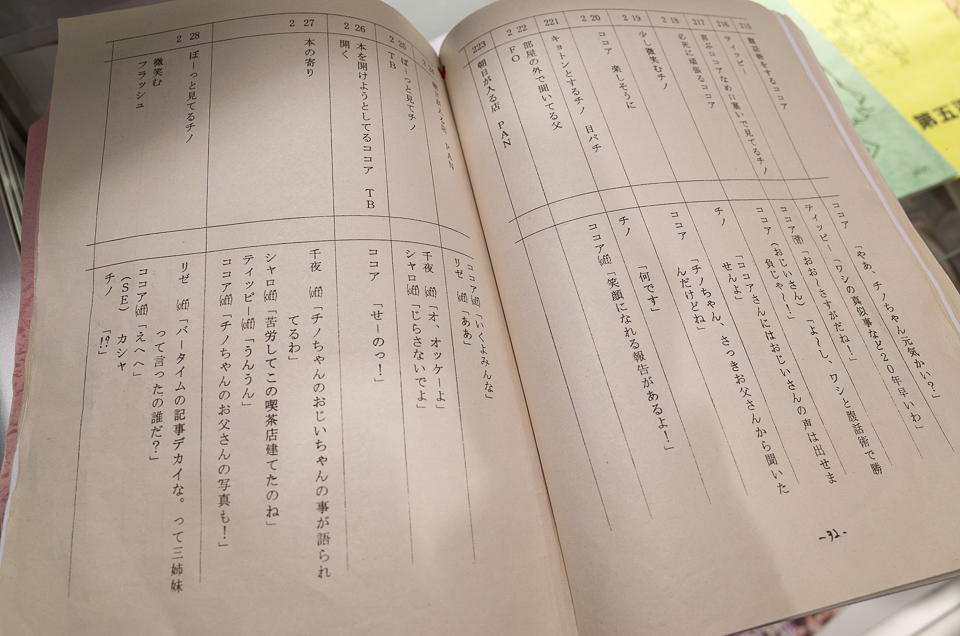 215 腹話術をするココア
216 ティッピー
217 喜ぶココアなめ口塞いで見てるチノ
218 必死に頑張るココア
219 少し微笑むチノ
220 ココア 楽しそうに
221 キョトンとするチノ 目パチ
222 部屋の外で聞いてる父
ＦＯ
223 朝日が入る店 ＰＡＮ
ココア 「やあ、チノちゃん元気かい？」
ティッピー「ワシの真似事など２０年早いわ」
ココア 「おお～さすがだね！」
ココア（おじいさん）「よ～し、ワシと腹話術で勝
負じゃ～！」
チノ 「ココアさんにはおじいさんの声は出せま
せんよ」
ココア 「チノちゃん、さっきお父さんから聞いた
んだけどね」
チノ 「何です」
ココア㊋「笑顔になれる報告があるよ！」
-32-
ＰＡＮ
225 ぼーっと見てチノ
ＴＢ
226 本を開けようとしてるココア ＴＢ
開く
227 本の寄り
228 ぼーっと見てるチノ
微笑む
フラッシュ
ココア(off)「いくよみんな」
リゼ (off)「ああ」
千夜 (off)「オ、オッケーよ」
シャロ(off)「じらさないでよ」
ココア 「せーのっ！」
千夜 (off)「チノちゃんのおじいちゃんの事が語られ
てるわ」
シャロ(off)「苦労してこの喫茶店建てたのね」
ティッピー(off)「うんうん」
ココア(off)「チノちゃんのお父さんの写真も！」
リゼ (off)「バータイムの記事デカイな。って三姉妹
って言ったの誰だ？」
ココア(off)「えへへ」
（ＳＥ） カシャ
チノ 「!?」
第五